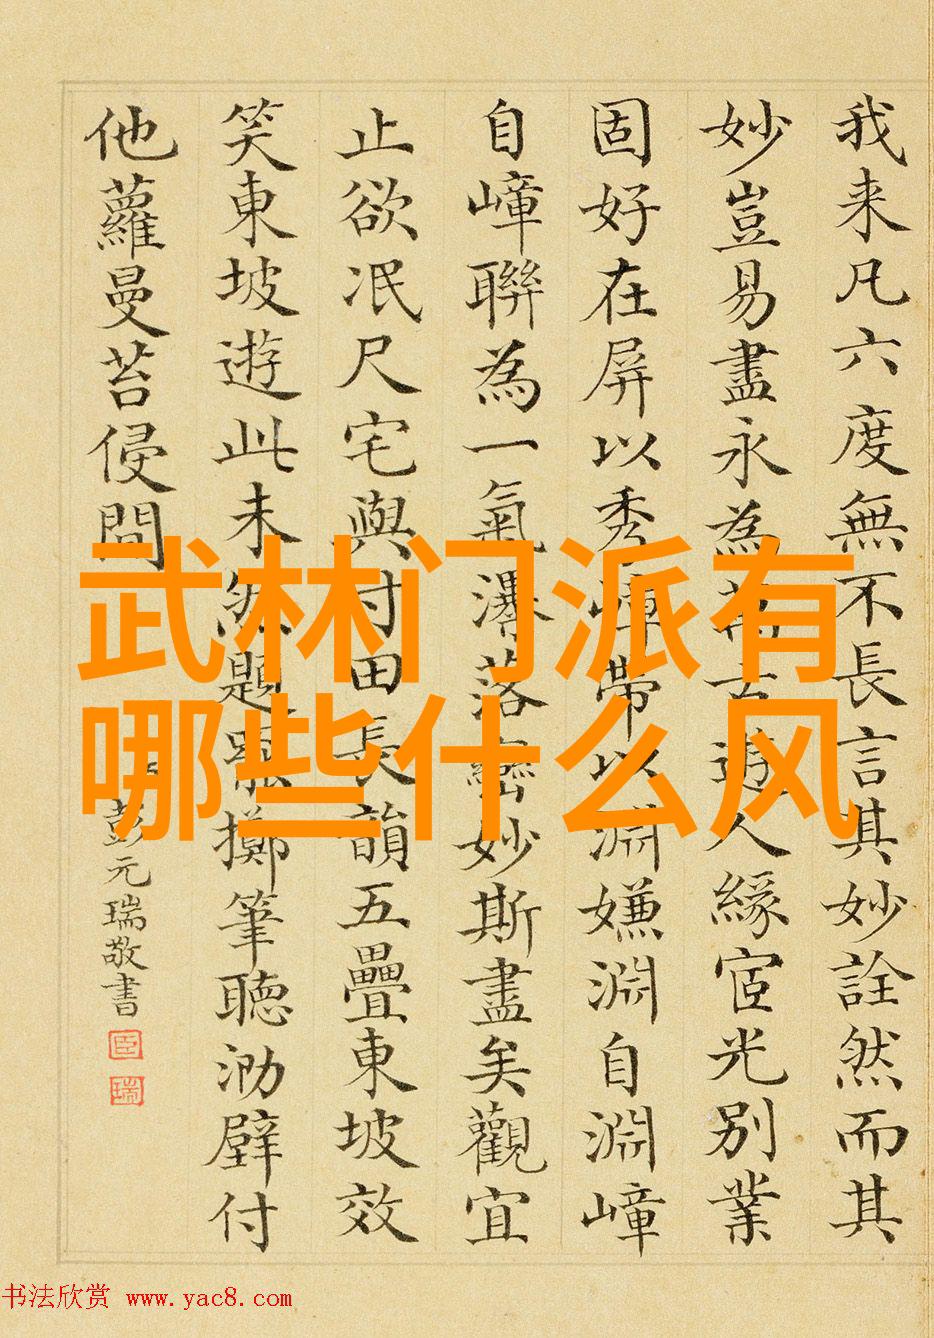 我来凡六度無不長言其妙詮然而其
妙豈易盡永為萬古遊人緣宧光別業
固好在屏以秀嶂帶以淵嫌淵自淵嶂
自嶂聯為一氣瀑落妙斯盡矣觀宜
止欲冺尺宅與寸田長韻五疊東坡效
笑東坡遊此未然題擲筆聴泐壁付
他蘿曼苔侵問
彭元瑞敬書
臣
瑞
武林门派有
哪些什么风
书法欣赏 www.yac8.com